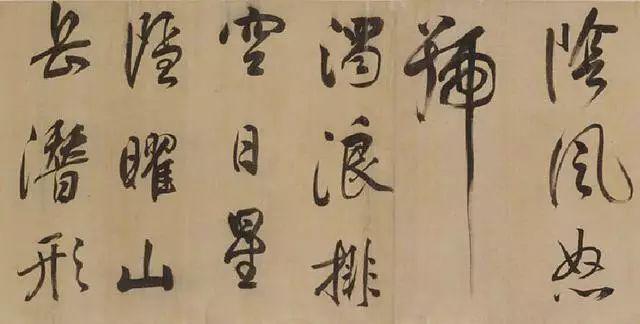 陰風怒
號
濁浪排
空日星
隱曜山
岳潛形